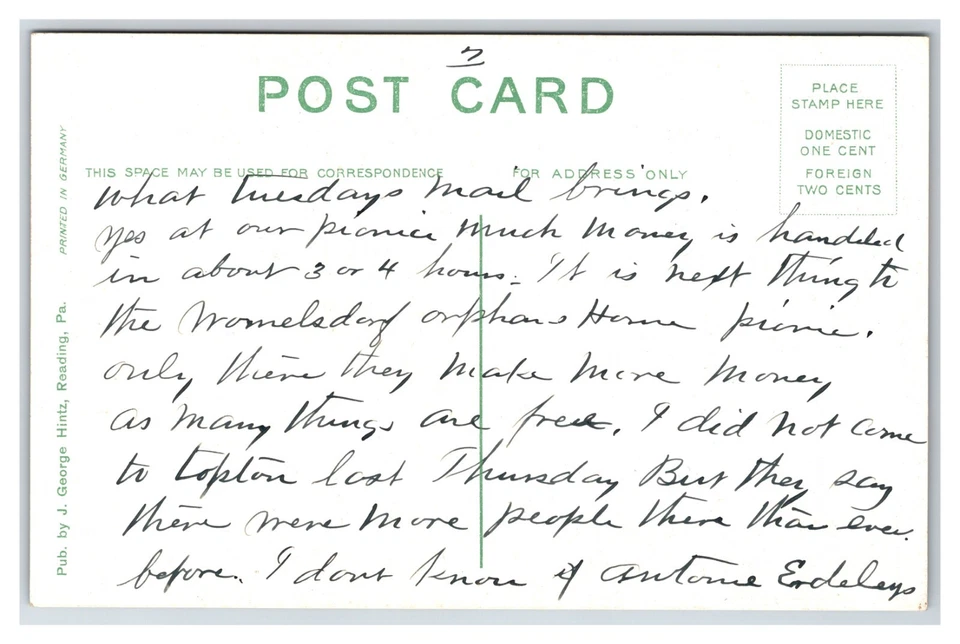 7
POST CARD
PLACE
STAMP HERE
DOMESTIC
ONE CENT
FOREIGN
TWO CENTS
THIS SPACE MAY BE USED FOR CORRESPONDENCE
FOR ADDRESS ONLY
PRINTED IN GERMANY
Pub. by J. George Hintz, Reading, Pa.
What Tuesdays Mail brings.
Yes at our picnic much Money is handeled
in about 3 or 4 hours. It is next thing to
the Womelsdorf orphans Home picnic.
only there they make more money
as many things are free. I did not come
to Topton last Thursday But they say
there were more people there than ever
before. I dont know if Antome Erdeleys